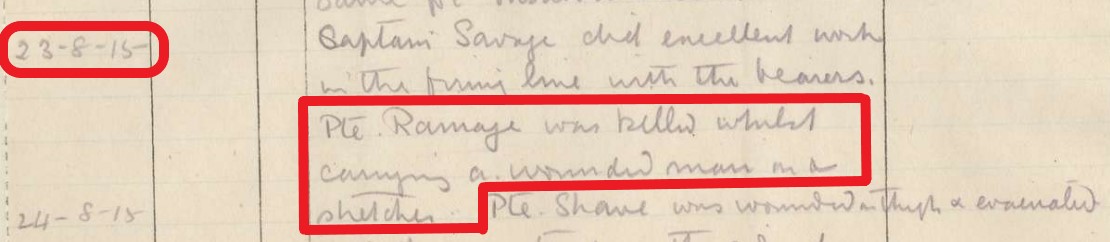 23-8-15 Captain Savage did excellent work
in the firing line with the bearers.
Pte. Ramage was killed whilst
carrying a wounded man on a
24-8-15 stretcher. Pte. Shave was wounded in thigh & evacuated